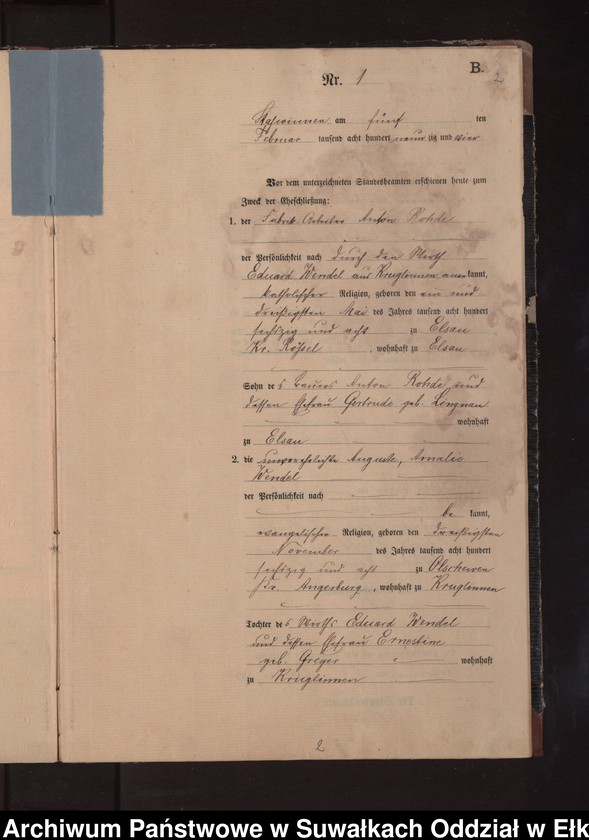 B.
2
Nr. 1
Staswinnen am fünf ten
Februar tausend acht hundert neunzig und vier
Vor dem unterzeichneten Standesbeamten erschienen heute zum
Zweck der Eheschließung:
1. der Fabrik Arbeiter Anton Rohde
der Persönlichkeit nach durch den Wirth
Eduard Wendel aus Kruglinnen aner kannt,
katholischer Religion, geboren den ein und
dreißigsten Mai des Jahres tausend acht hundert
sechszig und acht zu Elsau
Kr. Rößel, wohnhaft zu Elsau
Sohn des Bauers Anton Rohde und
dessen Ehefrau Gertrude geb. Lingnau
wohnhaft
zu Elsau
2. die unverehelichte Auguste, Amalie
Wendel
der Persönlichkeit nach
be kannt,
evangelischer Religion, geboren den dreißigsten
November des Jahres tausend acht hundert
sechszig und acht zu Olschewen
Kr. Angerburg, wohnhaft zu Kruglinnen
Tochter des Wirths Eduard Wendel
und dessen Ehefrau Ernestine
geb. Greger wohnhaft
zu Kruglinnen
2
Archiwum Państwowe w Suwałkach Oddział w Ełku